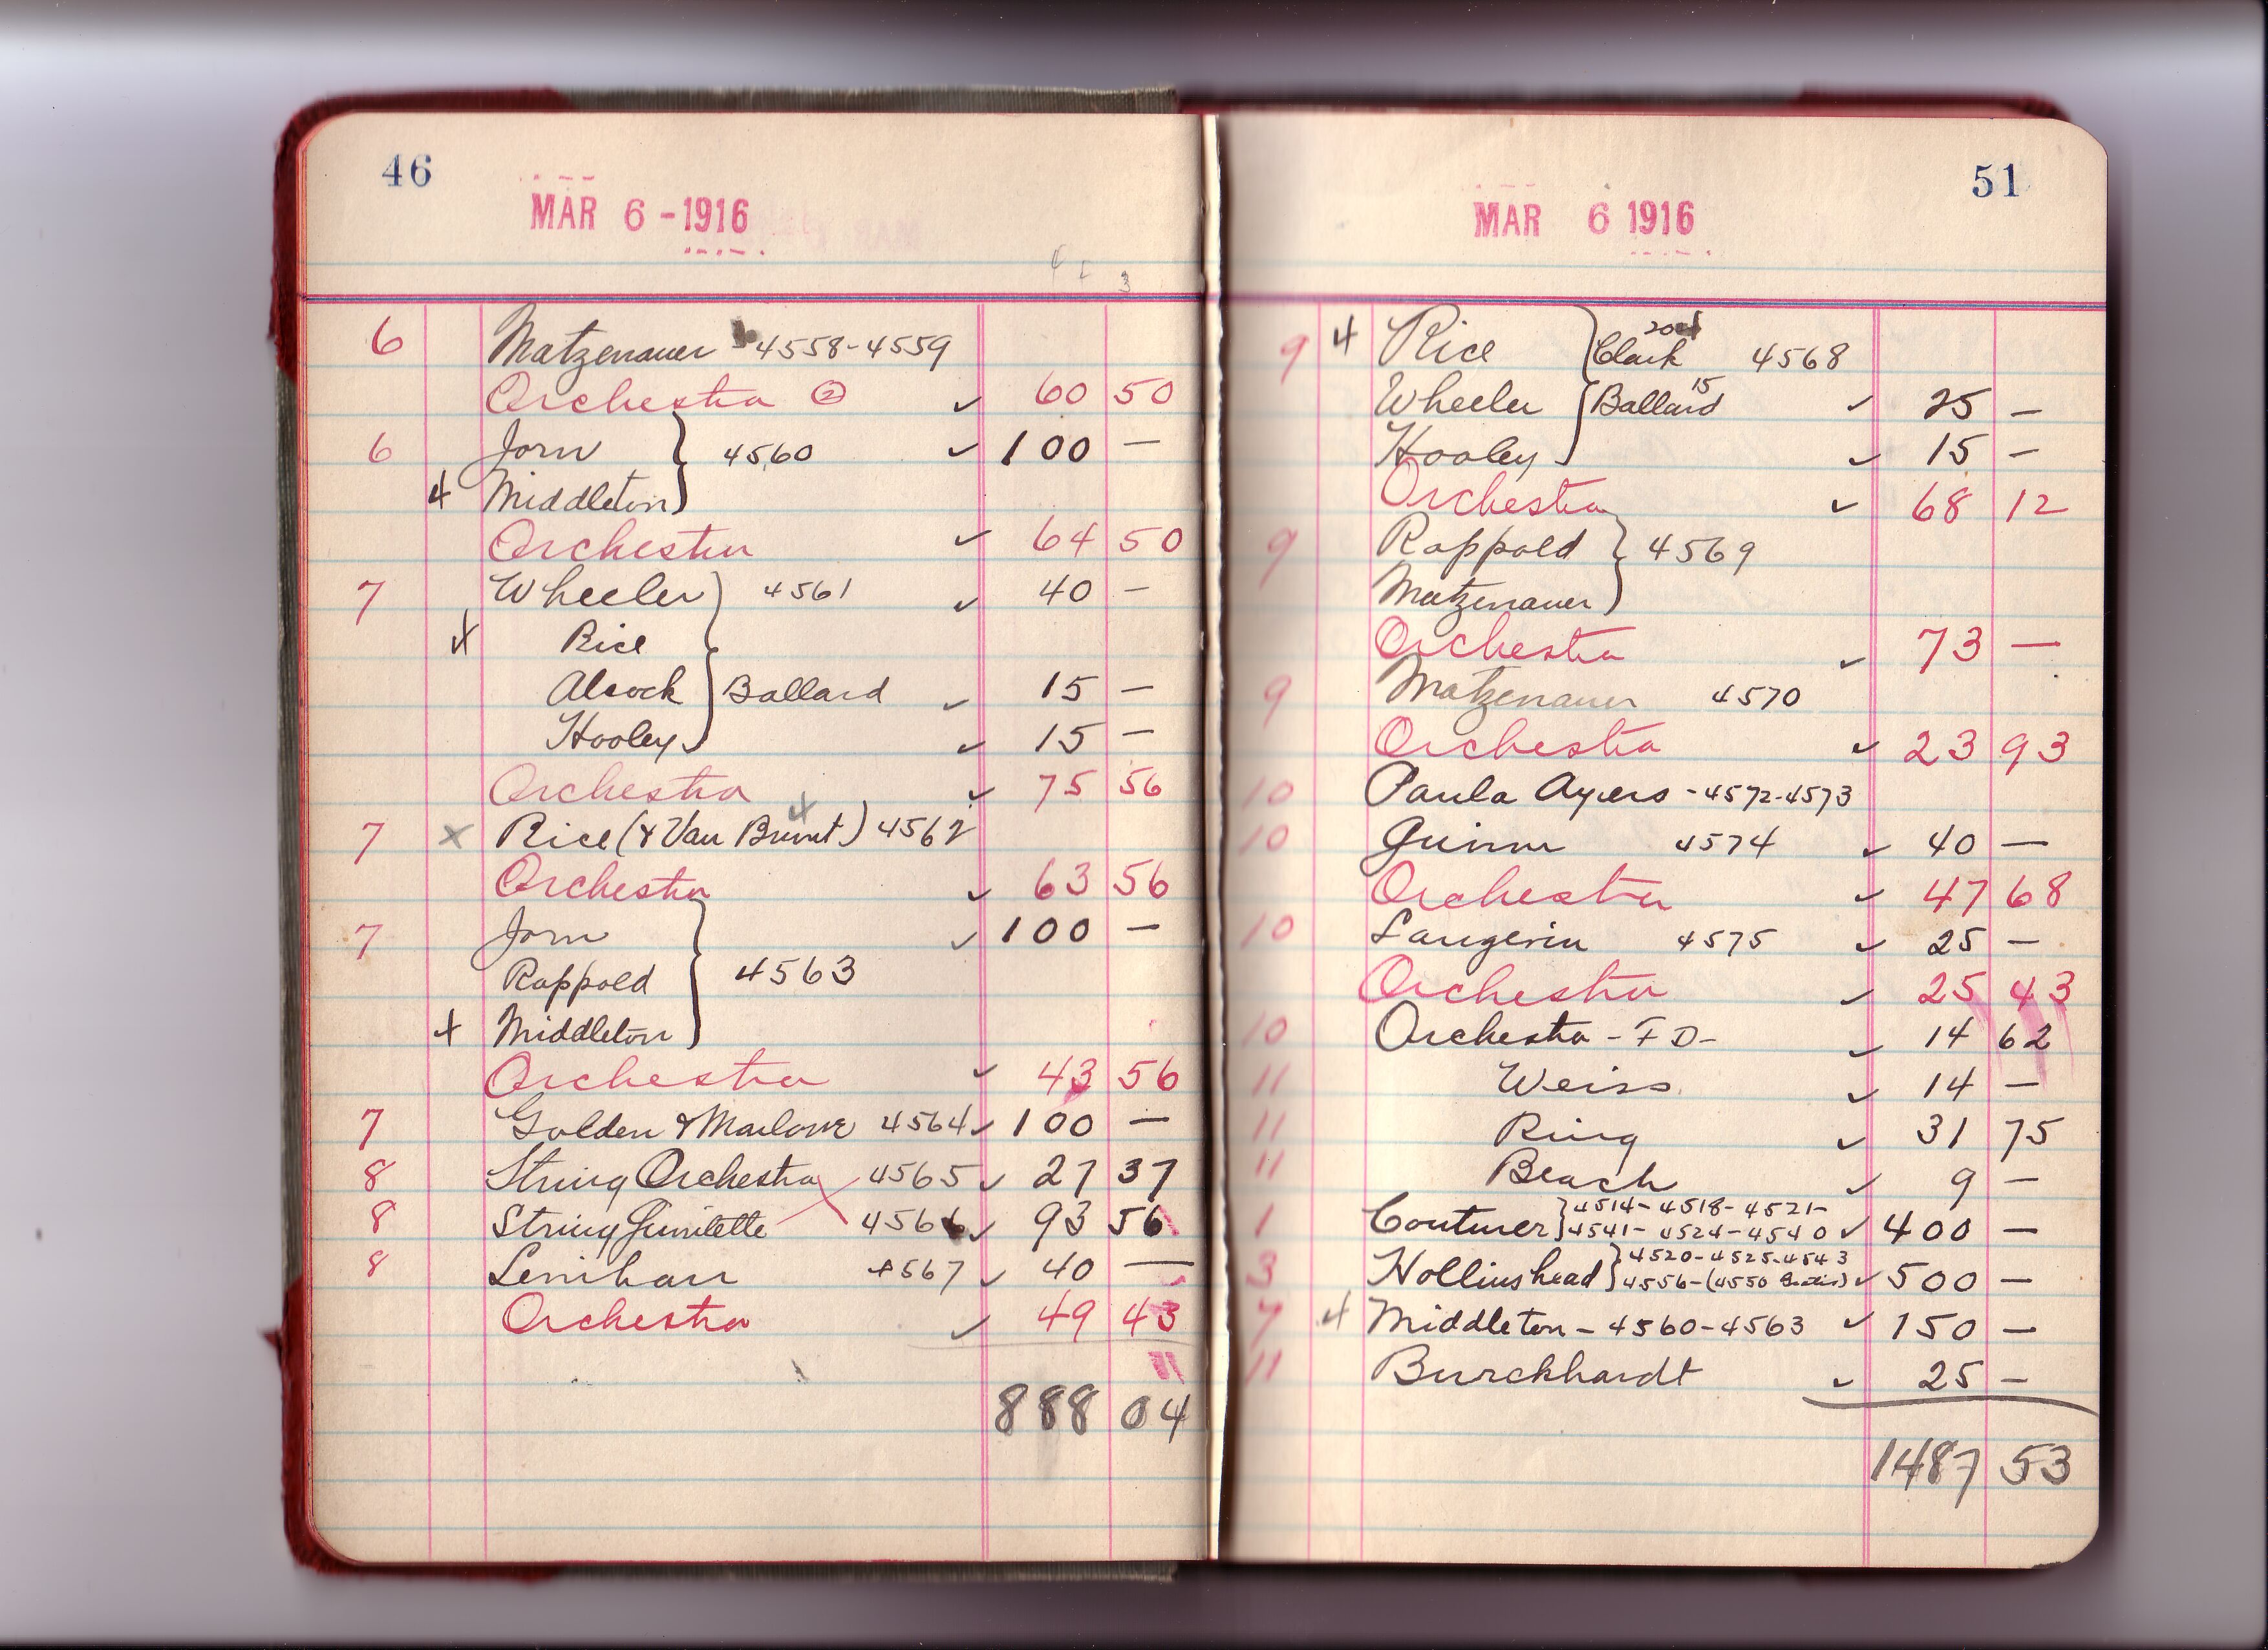 46
MAR 6 - 1916
3
6 Matzenauer 4558-4559
Orchestra ② ✓ 60 50
6 Jorn } 4560 ✓ 100 —
Middleton
Orchestra ✓ 64 50
7 Wheeler 4561 ✓ 40 —
Rice
Alcock } Ballard ✓ 15 —
Hooley ✓ 15 —
Orchestra ✓ 75 56
7 x Rice (& Van Brunt) 4562
Orchestra ✓ 63 56
7 Jorn ✓ 100 —
Rappold } 4563
Middleton
Orchestra ✓ 43 56
7 Golden & Marlowe 4564 ✓ 100 —
8 String Orchestra 4565 ✓ 27 37
8 String 4566 ✓ 93 56
8 Lenihan 4567 ✓ 40 —
Orchestra ✓ 49 43
888 04
51
MAR 6 1916
9 Rice } Clark 4568
Wheeler } Ballard 15 ✓ 25 —
Hooley ✓ 15 —
Orchestra ✓ 68 12
9 Rappold } 4569
Matzenauer
Orchestra ✓ 73 —
9 Matzenauer 4570
Orchestra ✓ 23 93
10 Paula Ayers - 4572-4573
10 Guinn 4574 ✓ 40 —
Orchestra ✓ 47 68
10 Langevin 4575 ✓ 25 —
Orchestra ✓ 25 43
10 Orchestra - F D - ✓ 14 62
11 Weiss ✓ 14 —
11 Ring ✓ 31 75
11 Beach ✓ 9 —
1 Couturer } 4514-4518-4521-
4541-4524-4540 ✓ 400 —
3 Hollinshead } 4520-4525-4543
4556-(4550 ✓ 500 —
7 Middleton - 4560-4563 ✓ 150 —
11 Burckhardt ✓ 25 —
1487 53